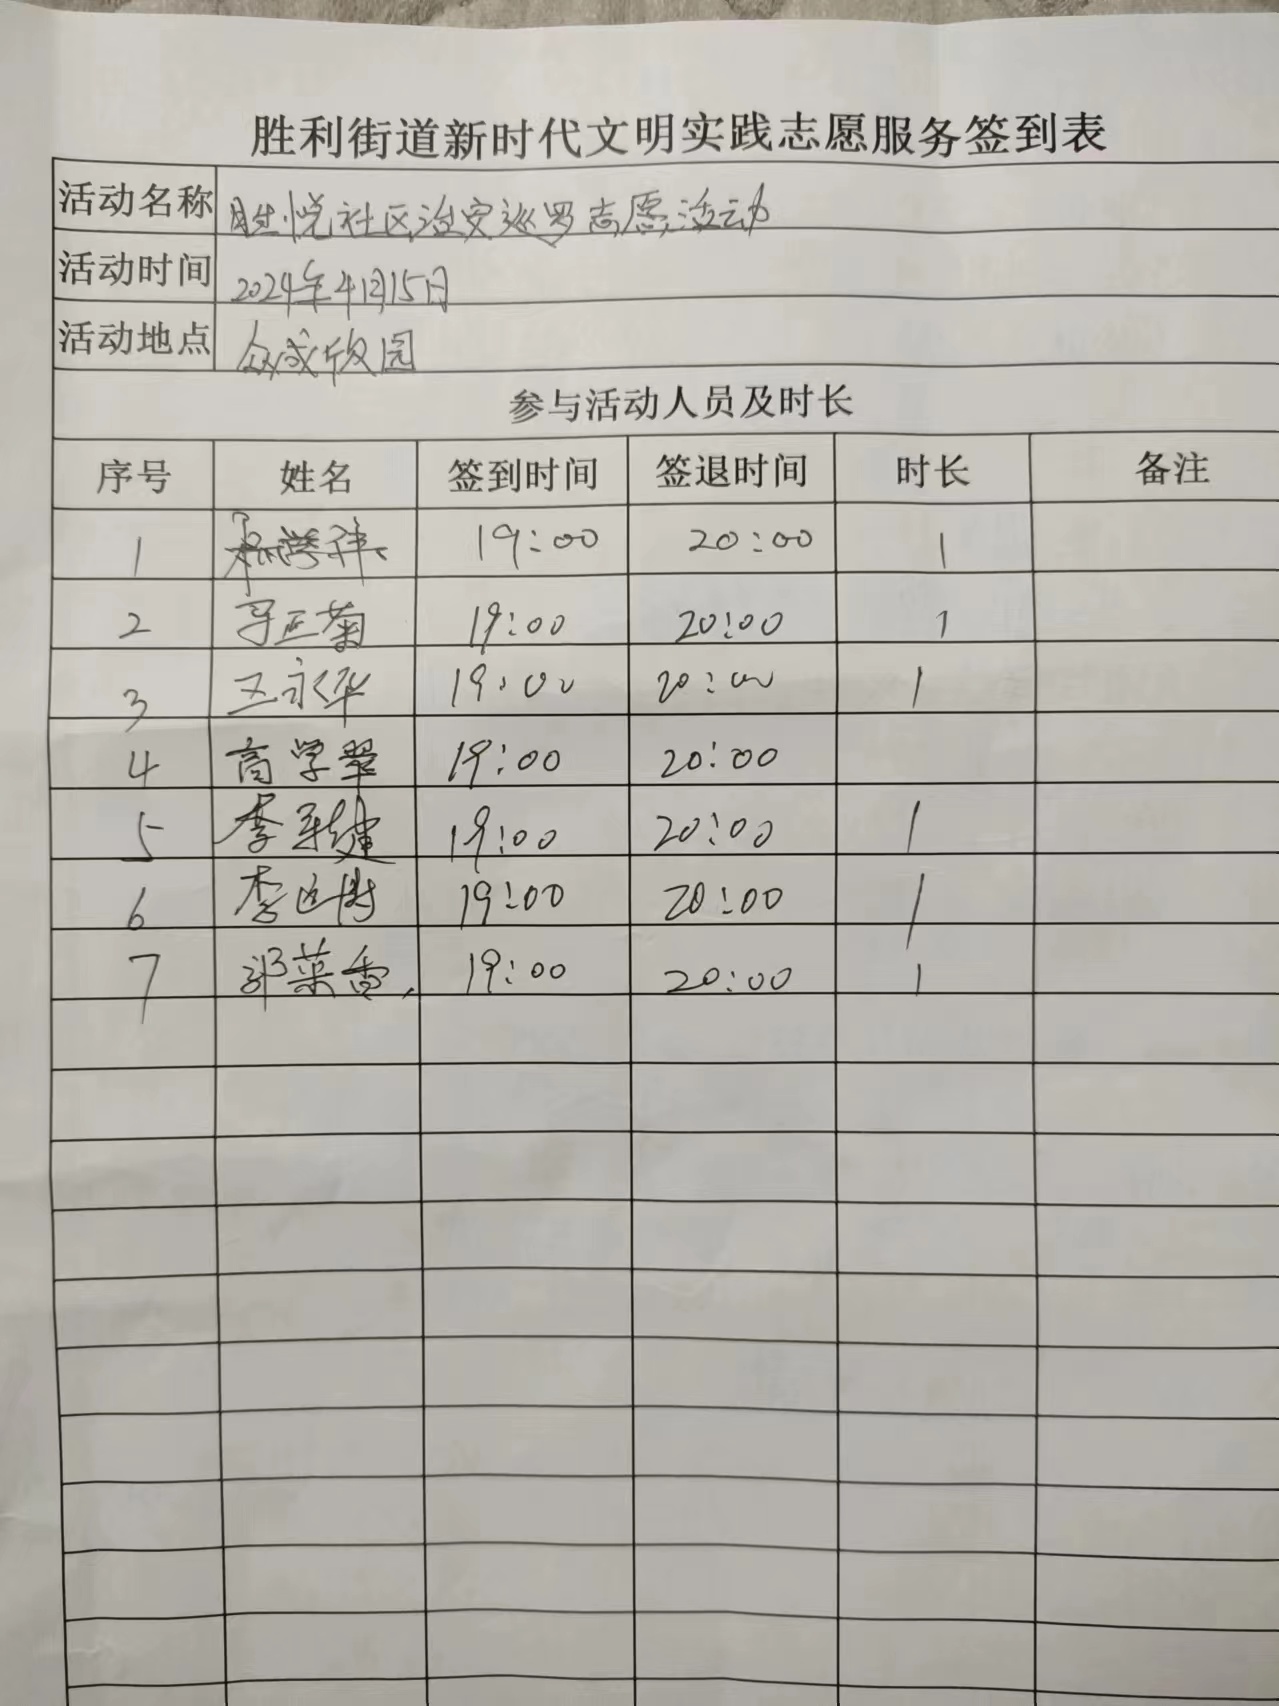 胜利街道新时代文明实践志愿服务签到表
活动名称 胜悦社区治安巡罗志愿活动
活动时间 2024年4月15日
活动地点 众成欣园
参与活动人员及时长
序号 姓名 签到时间 签退时间 时长 备注
1 19:00 20:00 1
2 菊 19:00 20:00 1
3 王永华 19:00 20:00 1
4 高学翠 19:00 20:00
5 李 健 19:00 20:00 1
6 李 19:00 20:00 1
7 郭菜香 19:00 20:00 1